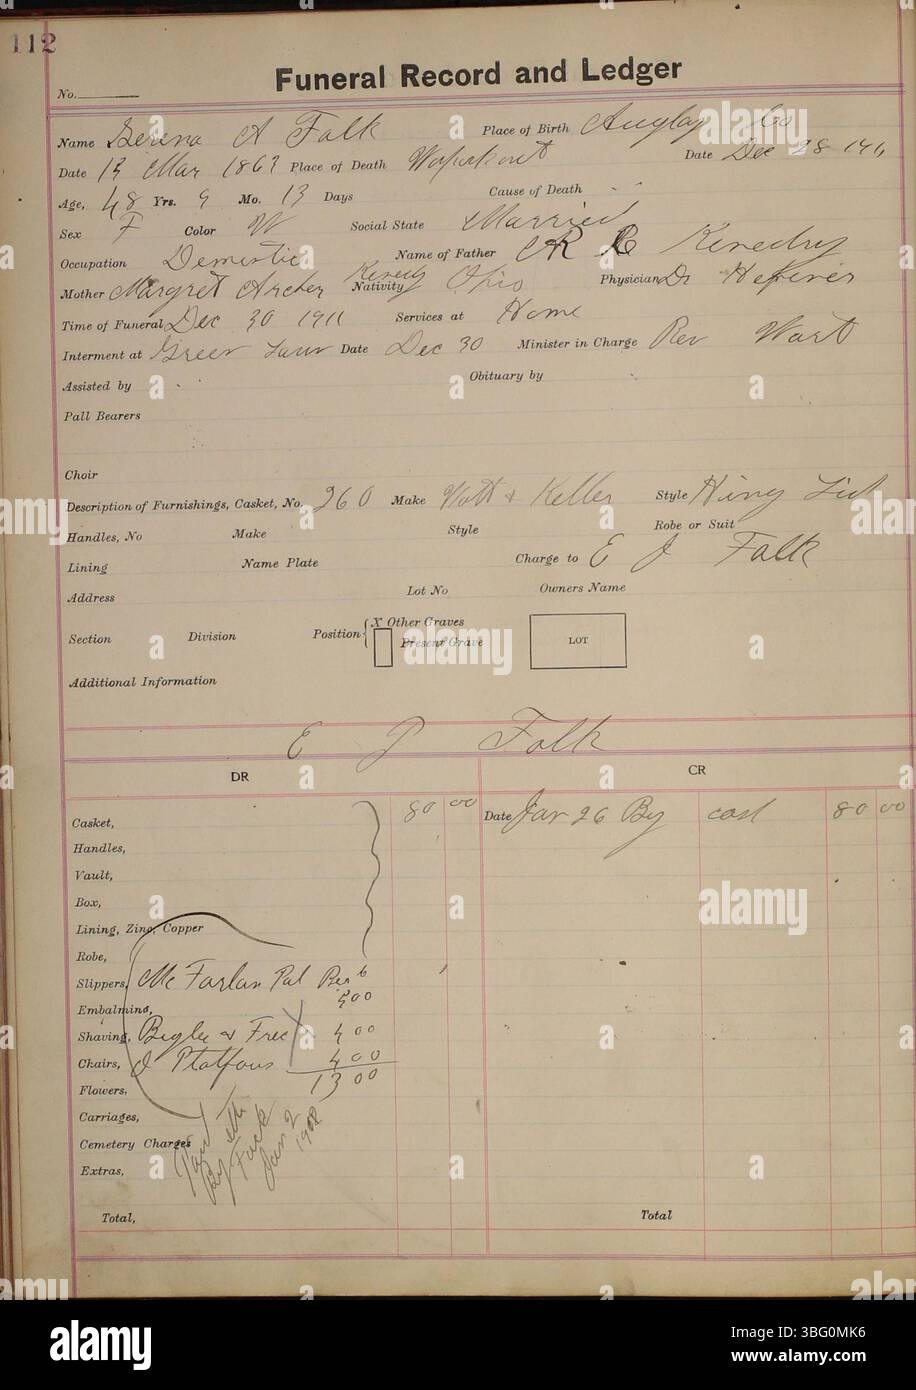 112
Funeral Record and Ledger
No.
Name Serena A Falk Place of Birth Auglay Co
Date 13 Mar 1863 Place of Death Wapakont Date Dec 28 1911
Age, 48 Yrs. 9 Mo. 13 Days Cause of Death
Sex F Color W Social State Married
Occupation Domestic Name of Father C R Kenedry
Mother Margret Archer Kenedy Nativity Ohio Physician Dr
Time of Funeral Dec 30 1911 Services at Home
Interment at Green Lawn Date Dec 30 Minister in Charge Rev Wart
Assisted by Obituary by
Pall Bearers
Choir
Description of Furnishings, Casket, No. 260 Make Watt & Keller Style
Handles, No Make Style Robe or Suit
Lining Name Plate Charge to E J Falk
Address Lot No Owners Name
Section Division Position X Other Graves
Present Grave
LOT
Additional Information
E J Falk
DR CR
Casket, 80 00 Date Jan 26 By cash 80 00
Handles,
Vault,
Box,
Lining, Zinc, Copper
Robe,
Slippers, Mc Farlan Pal Ber 6
500
Embalming,
Shaving, 400
Chairs, 400
Flowers, 13 00
Carriages,
Cemetery Charges
Extras,
Paid
By
Falk
Jan 2
Total, Total
alamy
alamy
Image ID: 3BG0MK6
www.alamy.com